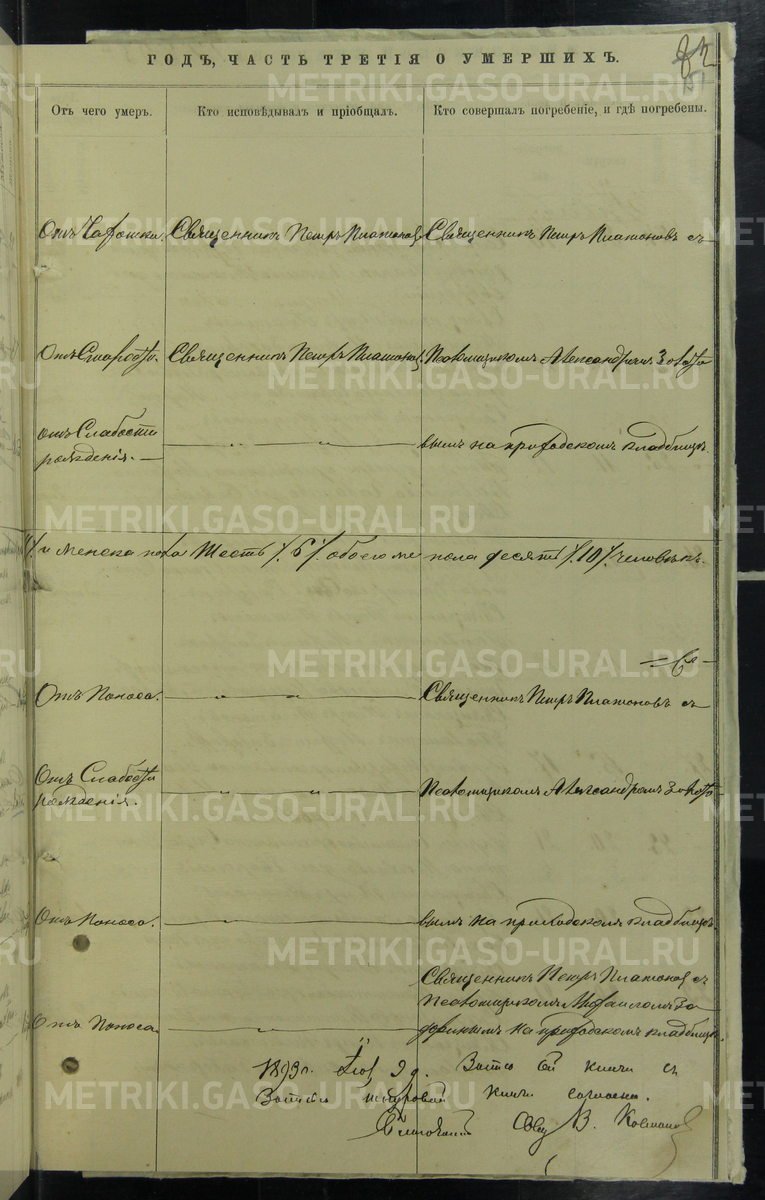 82
ГОДЪ, ЧАСТЬ ТРЕТІЯ О УМЕРШИХЪ.
METRIKI.GASO-URAL.RU
Отъ чего умеръ.
Кто исповѣдывалъ и пріобщалъ.
Кто совершалъ погребеніе, и гдѣ погребены.
Отъ Чахотки.
Священникъ Петръ Платоновъ
Священникъ Петръ Платоновъ съ
Отъ Старости.
Священникъ Петръ Платоновъ
Псаломщикомъ Александромъ
отъ Слабости
рожденія.
вымъ на приходскомъ кладбищѣ.
и женска пола Шесть /.6/. обоего же пола десять /.10/. человѣкъ.
Отъ Поноса.
Священникъ Петръ Платоновъ съ
Отъ Слабости
рожденія.
Псаломщикомъ Александромъ
Отъ Поноса.
вымъ на приходскомъ кладбищѣ.
Священникъ Петръ Платоновъ съ
Псаломщикомъ Михаиломъ
Отъ Поноса.
на приходскомъ кладбищѣ.
1893 г. 9 д. Запись сей книги съ
Записью книги согласна.
В.